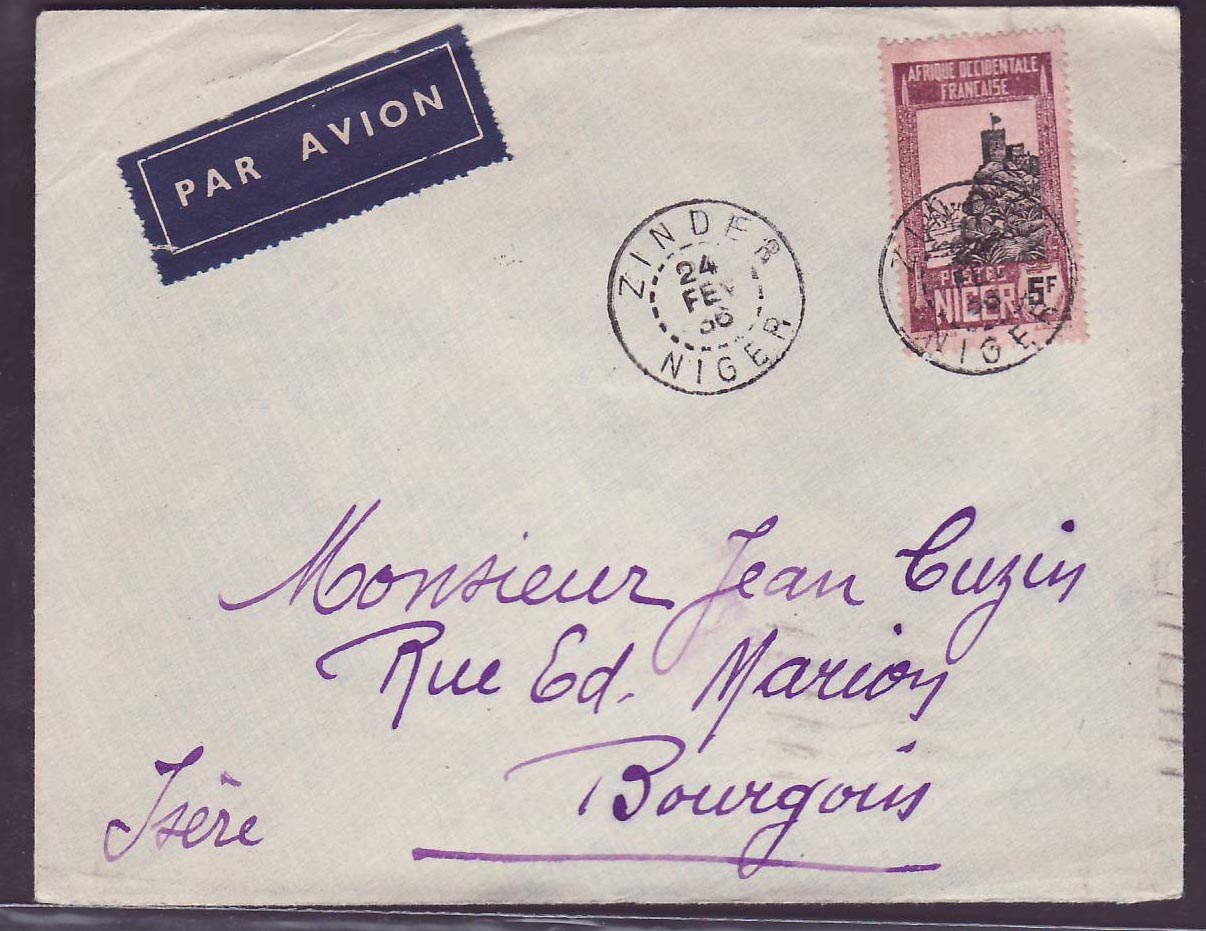 PAR AVION
AFRIQUE OCCIDENTALE
FRANCAISE
POSTES
NIGER 5F
ZINDER
24
FEV
36
NIGER
NIGER
Monsieur Jean Cuzin
Rue Ed. Marion
Bourgoin
Isère